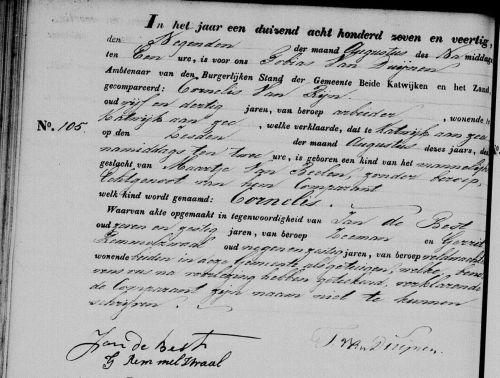 In het jaar een duizend acht honderd zeven en veertig,
den Negenden der maand Augustus des Na middags
ten Een ure, is voor ons Tobias Van Duijnen
Ambtenaar van den Burgerlijken Stand der Gemeente Beide Katwijken en het Zand,
gecompareerd: Cornelis Van Rijn
oud vijf en dertig jaren, van beroep arbeider, wonende te
Katwijk aan zee, welke verklaarde, dat te Katwijk aan zee
No. 105.
op den Zesden der maand Augustus dezes jaars, des
namiddags ten twee ure, is geboren een kind van het mannelijk
geslacht van Maartje Van Beelen, zonder beroep,
Echtgenoot van hem Comparant
welk kind wordt genaamd: Cornelis
Waarvan akte opgemaakt in tegenwoordigheid van Jan de Best
oud zeven en zestig jaren, van beroep Zeeman en Gerrit
Remmelzwaal oud negen en zestig jaren, van beroep
wonende beiden in deze Gemeente als getuigen, welke
ons na voorlezing hebben geteekend, verklarende
de Comparant zijn naam niet te kunnen
schrijven
Jan de Best
G Remmelzwaal
T Van Duijnen